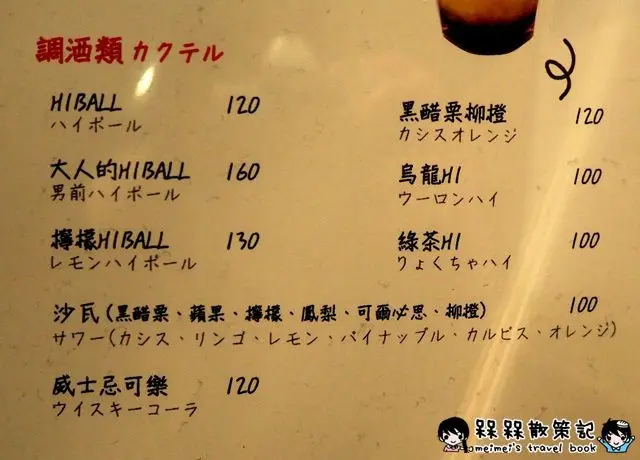 調酒類 カクテル
HIBALL 120
ハイボール
大人的HIBALL 160
男前ハイボール
檸檬HIBALL 130
レモンハイボール
黑醋栗柳橙 120
カシスオレンジ
烏龍HI 100
ウーロンハイ
綠茶HI 100
りょくちゃハイ
沙瓦(黑醋栗、蘋果、檸檬、鳳梨、可爾必思、柳橙) 100
サワー(カシス、リンゴ、レモン、パイナップル、カルピス、オレンジ)
威士忌可樂 120
ウイスキーコーラ
槑槑散策記
meimei's travel book